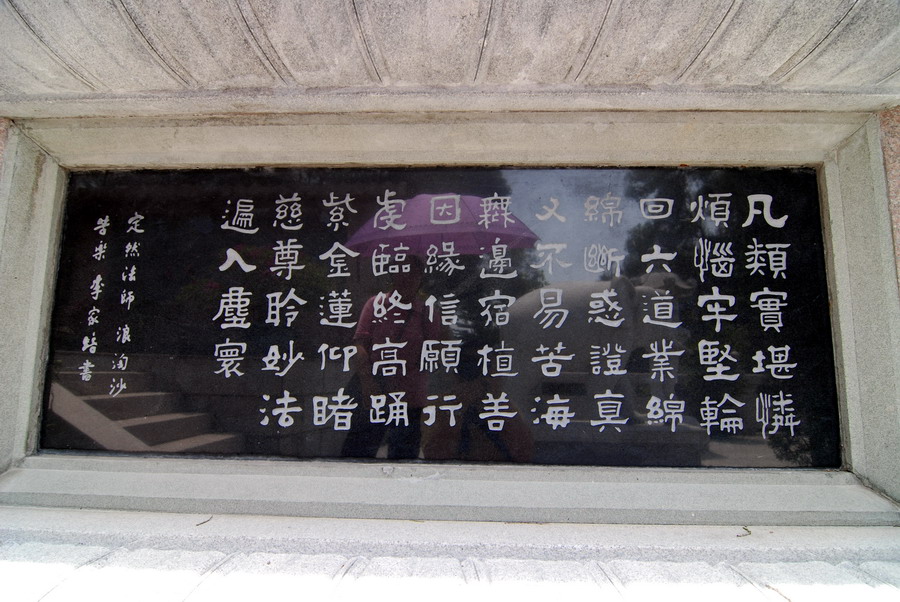 凡類實堪憐
煩惱牢堅輪
回六道業綿
綿斷惑證真
又不易苦海
無邊宿植善
因緣信願行
虔臨終高踴
紫金蓮仰睹
慈尊聆妙法
遍入塵寰
定然法師 浪淘沙
李家培書